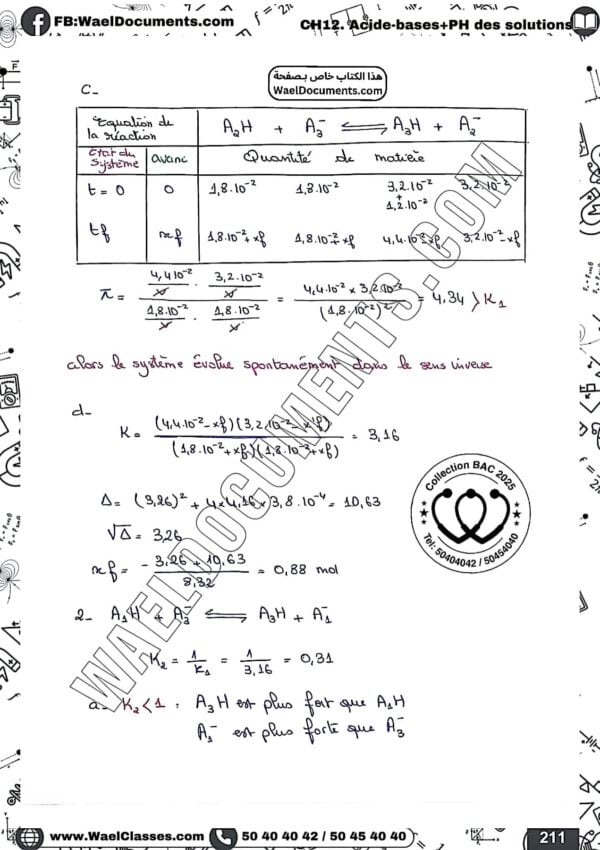 FB:WaelDocuments.com
CH12. Acide-bases+PH des solutions
هذا الكتاب خاص بصفحة
WaelDocuments.com
C-
Equation de la réaction A₂H + A₃⁻ ⇌ A₃H + A₂⁻
Etat du système avanc Quantité de matière
t = 0 0 1,8.10⁻² 1,8.10⁻² 3,2.10⁻² + 1,2.10⁻² 3,2.10⁻²
tf xf 1,8.10⁻² + xf 1,8.10⁻² + xf 4,4.10⁻² - xf 3,2.10⁻² - xf
π = (4,4.10⁻²/V . 3,2.10⁻²/V) / (1,8.10⁻²/V . 1,8.10⁻²/V) = (4,4.10⁻² x 3,2.10⁻²) / (1,8.10⁻²)² = 4,34 > K₁
alors le système évolue spontanément dans le sens inverse
d-
K = (4,4.10⁻² - xf)(3,2.10⁻² - xf) / (1,8.10⁻² + xf)(1,8.10⁻² + xf) = 3,16
Δ = (3,26)² + 4 x 4,16 x 3,8.10⁻⁴ = 10,63
√Δ = 3,26
xf = (- 3,26 + 10,63) / 8,32 = 0,88 mol
2- A₁H + A₃⁻ ⇌ A₃H + A₁⁻
K₂ = 1/K₁ = 1/3,16 = 0,31
a- K₂ < 1 : A₃H est plus fort que A₁H
A₁⁻ est plus forte que A₃⁻
WAELDOCUMENTS.COM
Collection BAC 2025
Tel: 50404042 / 50454040
www.WaelClasses.com
50 40 40 42 / 50 45 40 40
211